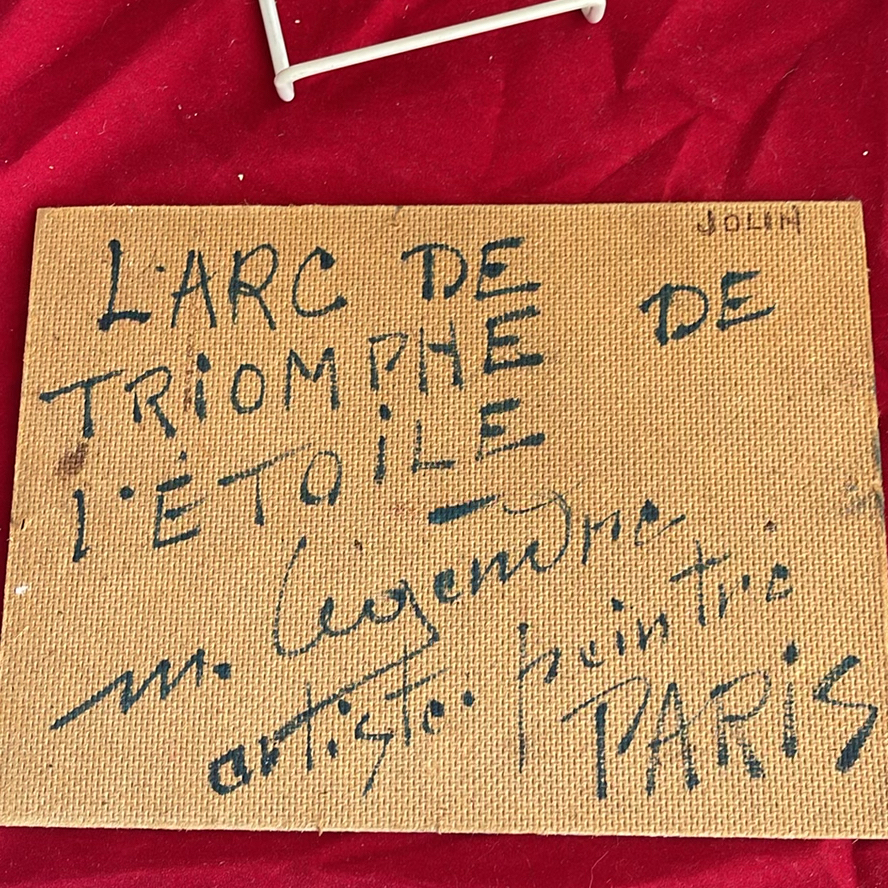 JOLIN
L'ARC DE
DE
TRIOMPHE
l'ÉTOILE
m. Legendre
artiste peintre
PARIS